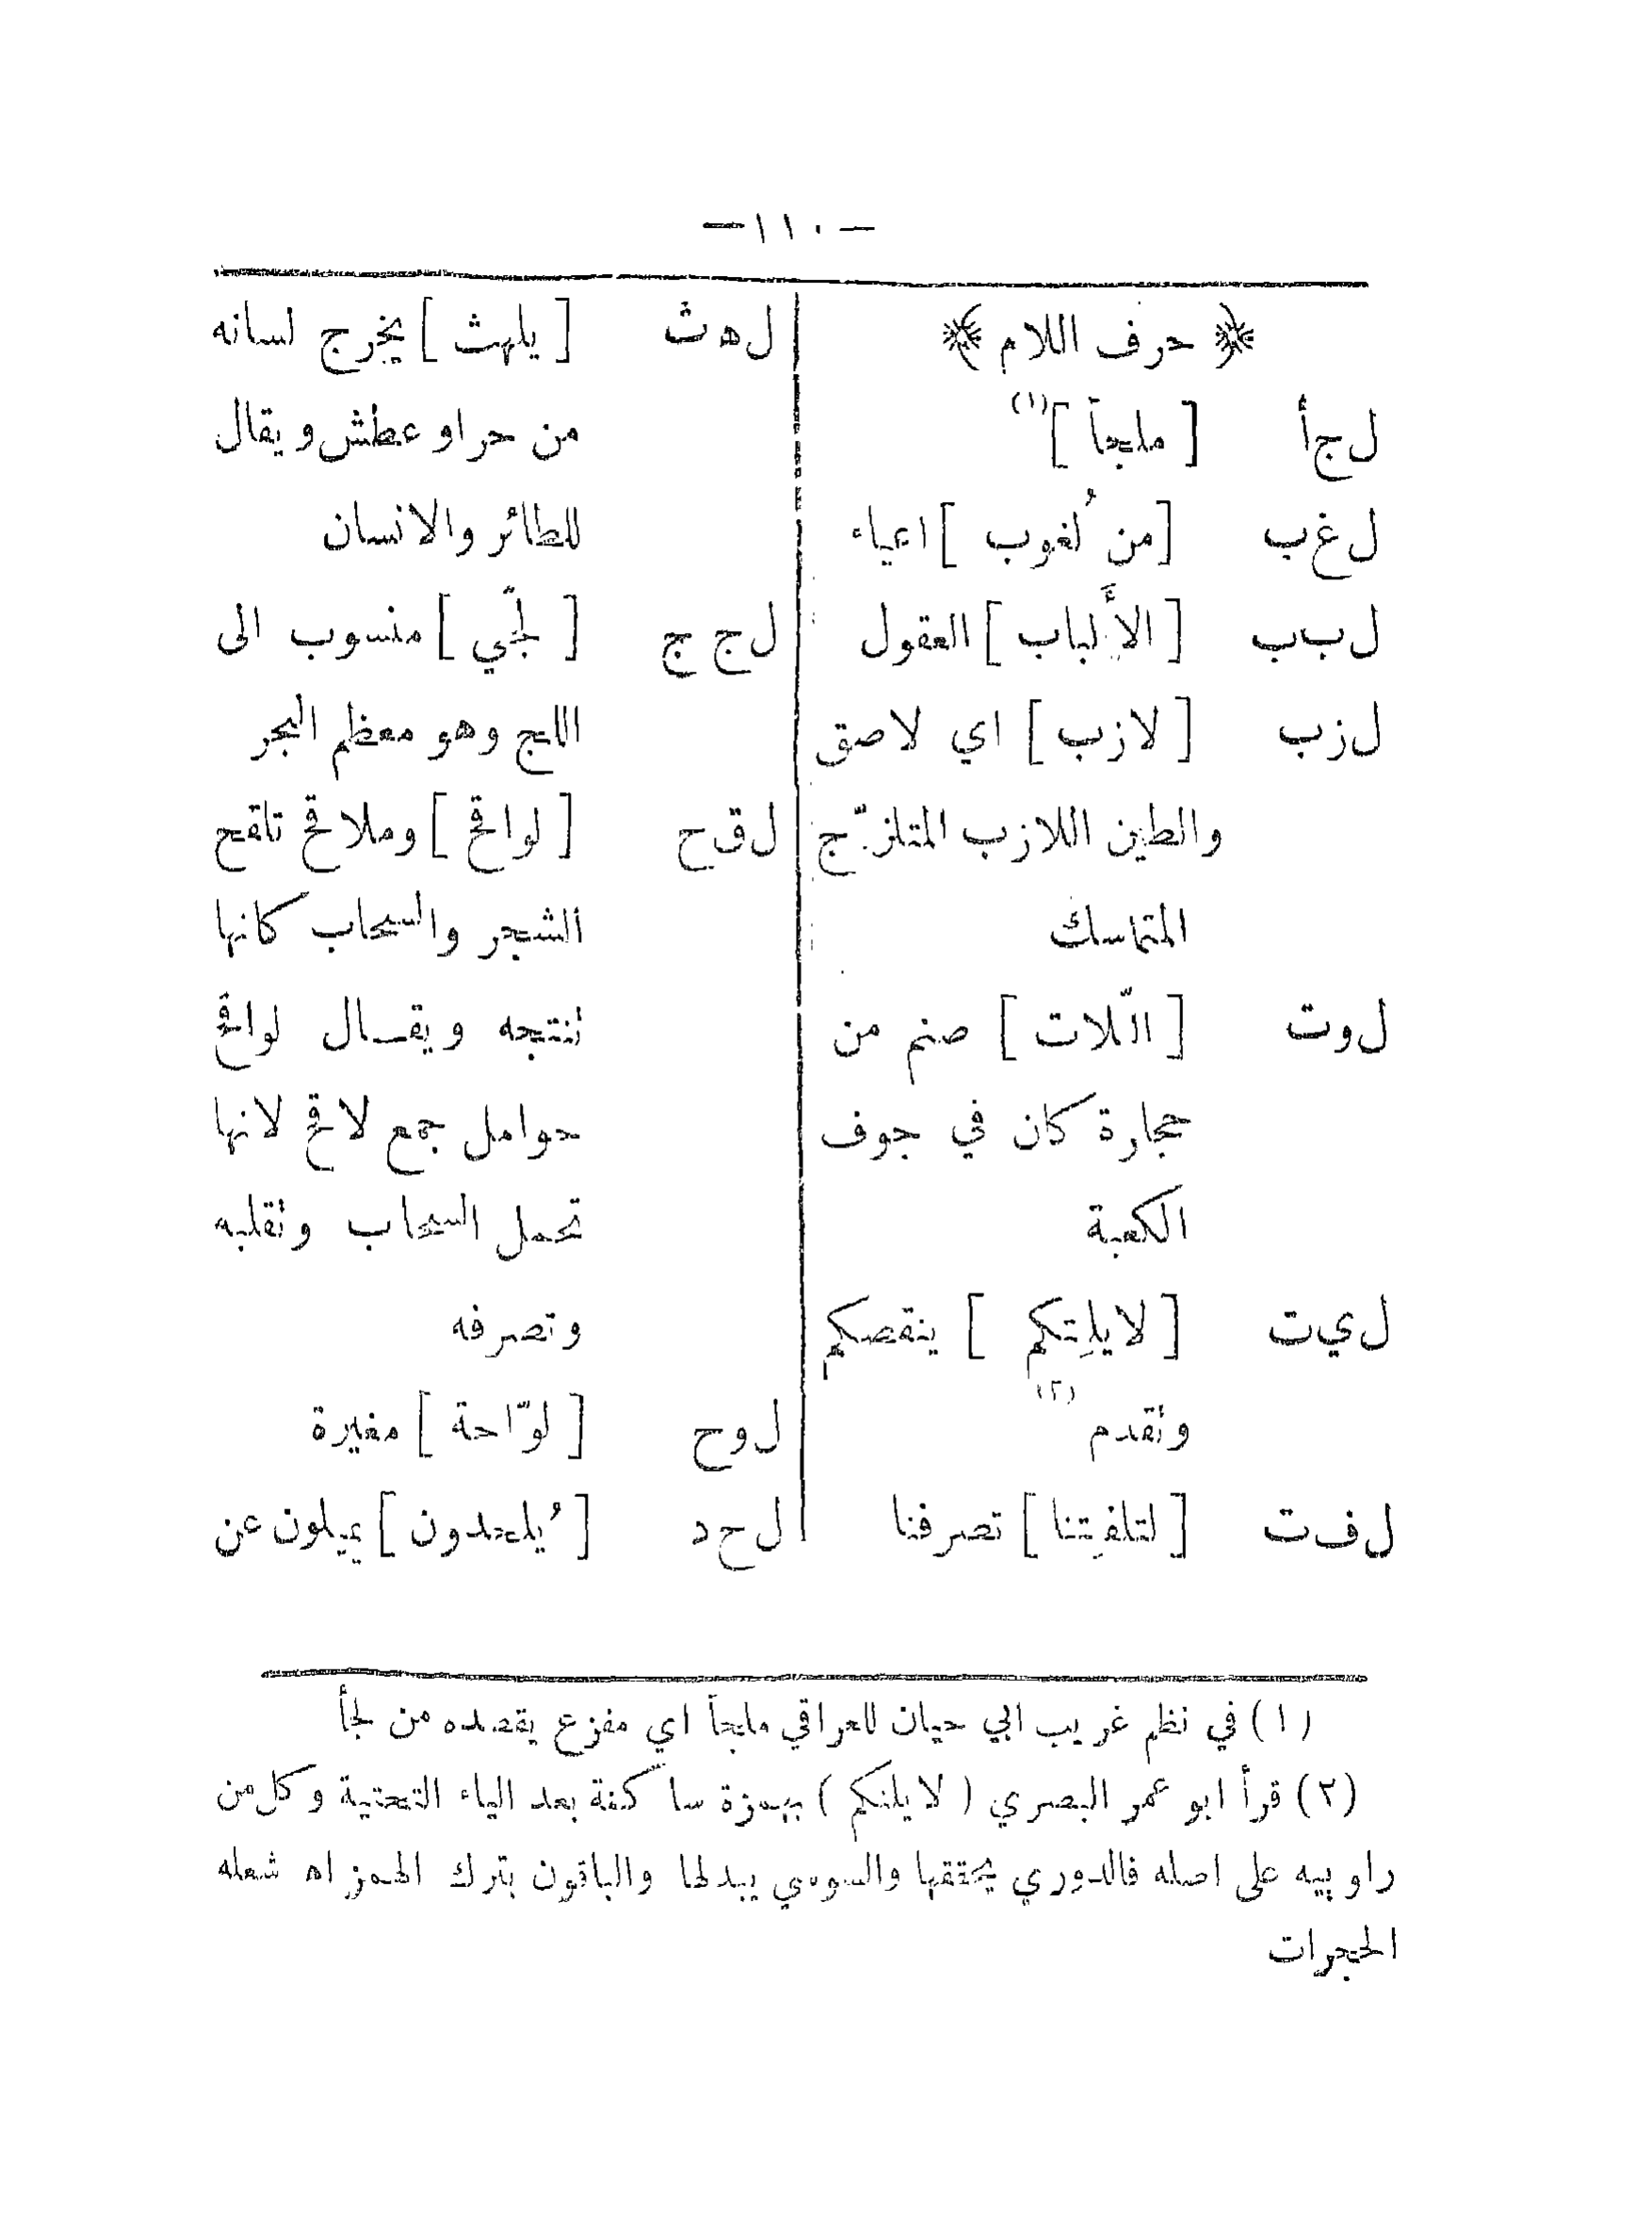 —١١٠—
﴿ حرف اللام ﴾
ل ج أ [ ملجأ ](١)
ل غ ب [ من لُغوب ] اعياء
ل ب ب [ الأَلباب ] العقول
ل ز ب [ لازب ] اي لاصق
والطين اللازب المتلزّج
المتماسك
ل و ت [ الّلات ] صنم من
حجارة كان في جوف
الكعبة
ل ي ت [ لايلِتكم ] ينقصكم
وتقدم (٢)
ل ف ت [ لتلفِتنا ] تصرفنا
ل ه ث [ يلهث ] يخرج لسانه
من حر او عطش ويقال
للطائر والانسان
ل ج ج [ لجّي ] منسوب الى
اللج وهو معظم البحر
ل ق ح [ لواقح ] وملاقح تلقح
الشجر والسحاب كانها
تنتجه ويقال لواقح
حوامل جمع لاقح لانها
تحمل السحاب وتقلبه
وتصرفه
ل و ح [ لوّاحة ] مغيرة
ل ح د [ يُلحدون ] يميلون عن
(١) في نظم غريب ابي حيان للعراقي ملجأ اي مفزع يقصده من لجأ
(٢) قرأ ابو عمر البصري ( لايلتكم ) بهمزة ساكنة بعد الياء التحتية وكل من
راوييه على اصله فالدوري يحققها والسوسي يبدلها والباقون بترك الهمز اه شعله
الحجرات